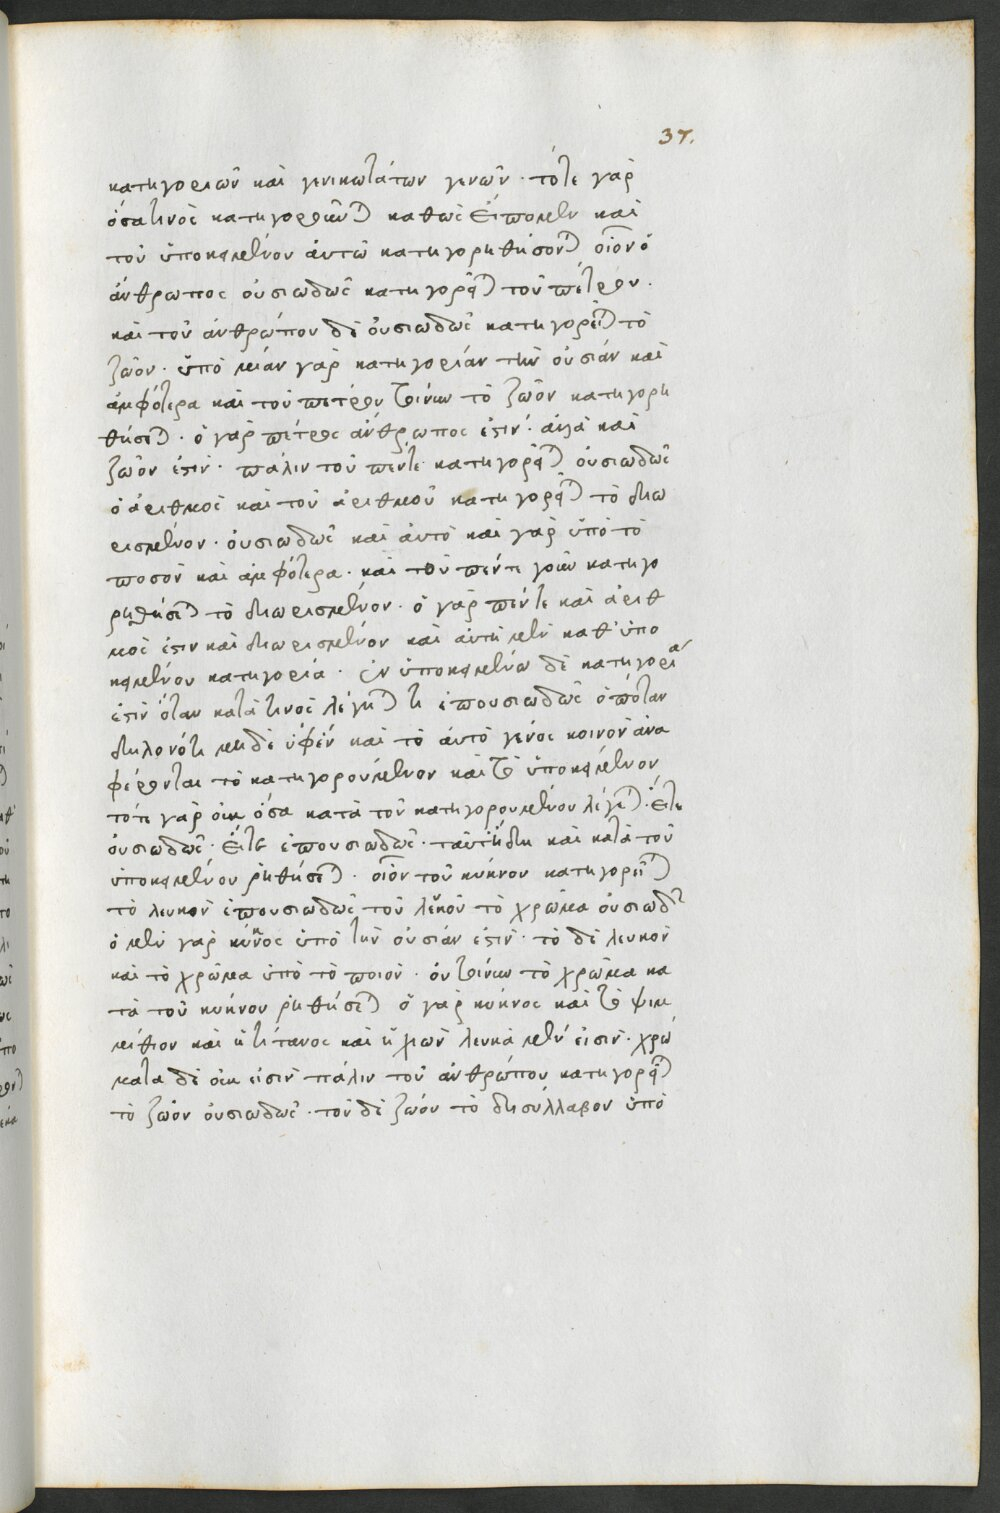 37.
κατηγοριῶν καὶ γενικωτάτων γενῶν · τότε γὰρ
ὅσα τινὸς κατηγοροῦνται καθὼς εἴπομεν καὶ
τοῦ ὑποκειμένου αὐτῶ κατηγορηθήσονται οἷον ὁ
ἄνθρωπος οὐσιωδῶς κατηγορεῖται τοῦ πέτρου ·
καὶ τοῦ ἀνθρώπου δὲ οὐσιωδῶς κατηγορεῖται τὸ
ζῶον · ὑπὸ μίαν γὰρ κατηγορίαν τὴν οὐσίαν καὶ
ἀμφότερα καὶ τοῦ πέτρου τοίνυν τὸ ζῶον κατηγορη
θήσεται · ὁ γὰρ πέτρος ἄνθρωπος ἐστιν · ἀλλὰ καὶ
ζῶον ἐστὶν · πάλιν τοῦ πέντε κατηγορεῖται οὐσιωδῶς
ὁ ἀριθμὸς καὶ τοῦ ἀριθμοῦ κατηγορεῖται τὸ διω
ρισμένον · οὐσιωδῶς καὶ αὐτὸ καὶ γὰρ ὑπὸ τὸ
ποσὸν καὶ ἀμφότερα · καὶ τοῦ πέντε γοῦν κατηγο
ρηθήσεται τὸ διωρισμένον · ὁ γὰρ πέντε καὶ ἀριθ
μός ἐστιν καὶ διωρισμένον καὶ αὐτη μὲν καθ' ὑπο
κειμένου κατηγορία · ἐν ὑποκειμένω δὲ κατηγορία
ἐστὶν ὅταν κατά τινος λέγηται τι ἐπουσιωδῶς ὁπόταν
δηλονότι μηδὲ ὑφ' ἓν καὶ τὸ αὐτὸ γένος κοινὸν ἀνα
φέρονται τὸ κατηγορούμενον καὶ τὸ ὑποκείμενον
τότε γὰρ οὐκ ὅσα κατὰ τοῦ κατηγορουμένου λέγεται · εἴτε
οὐσιωδῶς · εἴτε ἐπουσιωδῶς · ταῦτ' ἤδη καὶ κατὰ τοῦ
ὑποκειμένου ῥηθήσεται · οἷον τοῦ κύκνου κατηγορεῖται
τὸ λευκὸν ἐπουσιωδῶς τοῦ λευκοῦ τὸ χρῶμα οὐσιωδῶς
ὁ μὲν γὰρ κύκνος ὑπὸ τὴν οὐσίαν ἐστὶν · τὸ δὲ λευκὸν
καὶ τὸ χρῶμα ὑπὸ τὸ ποιὸν · οὐ τοίνυν τὸ χρῶμα κα
τὰ τοῦ κύκνου ῥηθήσεται ὁ γὰρ κύκνος καὶ τὸ ψιμ
μίθιον καὶ ἡ τίτανος καὶ ἡ χιὼν λευκὰ μὲν εἰσὶν · χρώ
ματα δὲ οὐκ εἰσὶν πάλιν τοῦ ἀνθρώπου κατηγορεῖται
τὸ ζῶον οὐσιωδῶς · τοῦ δὲ ζώου τὸ δησύλλαβον ὑπὸ